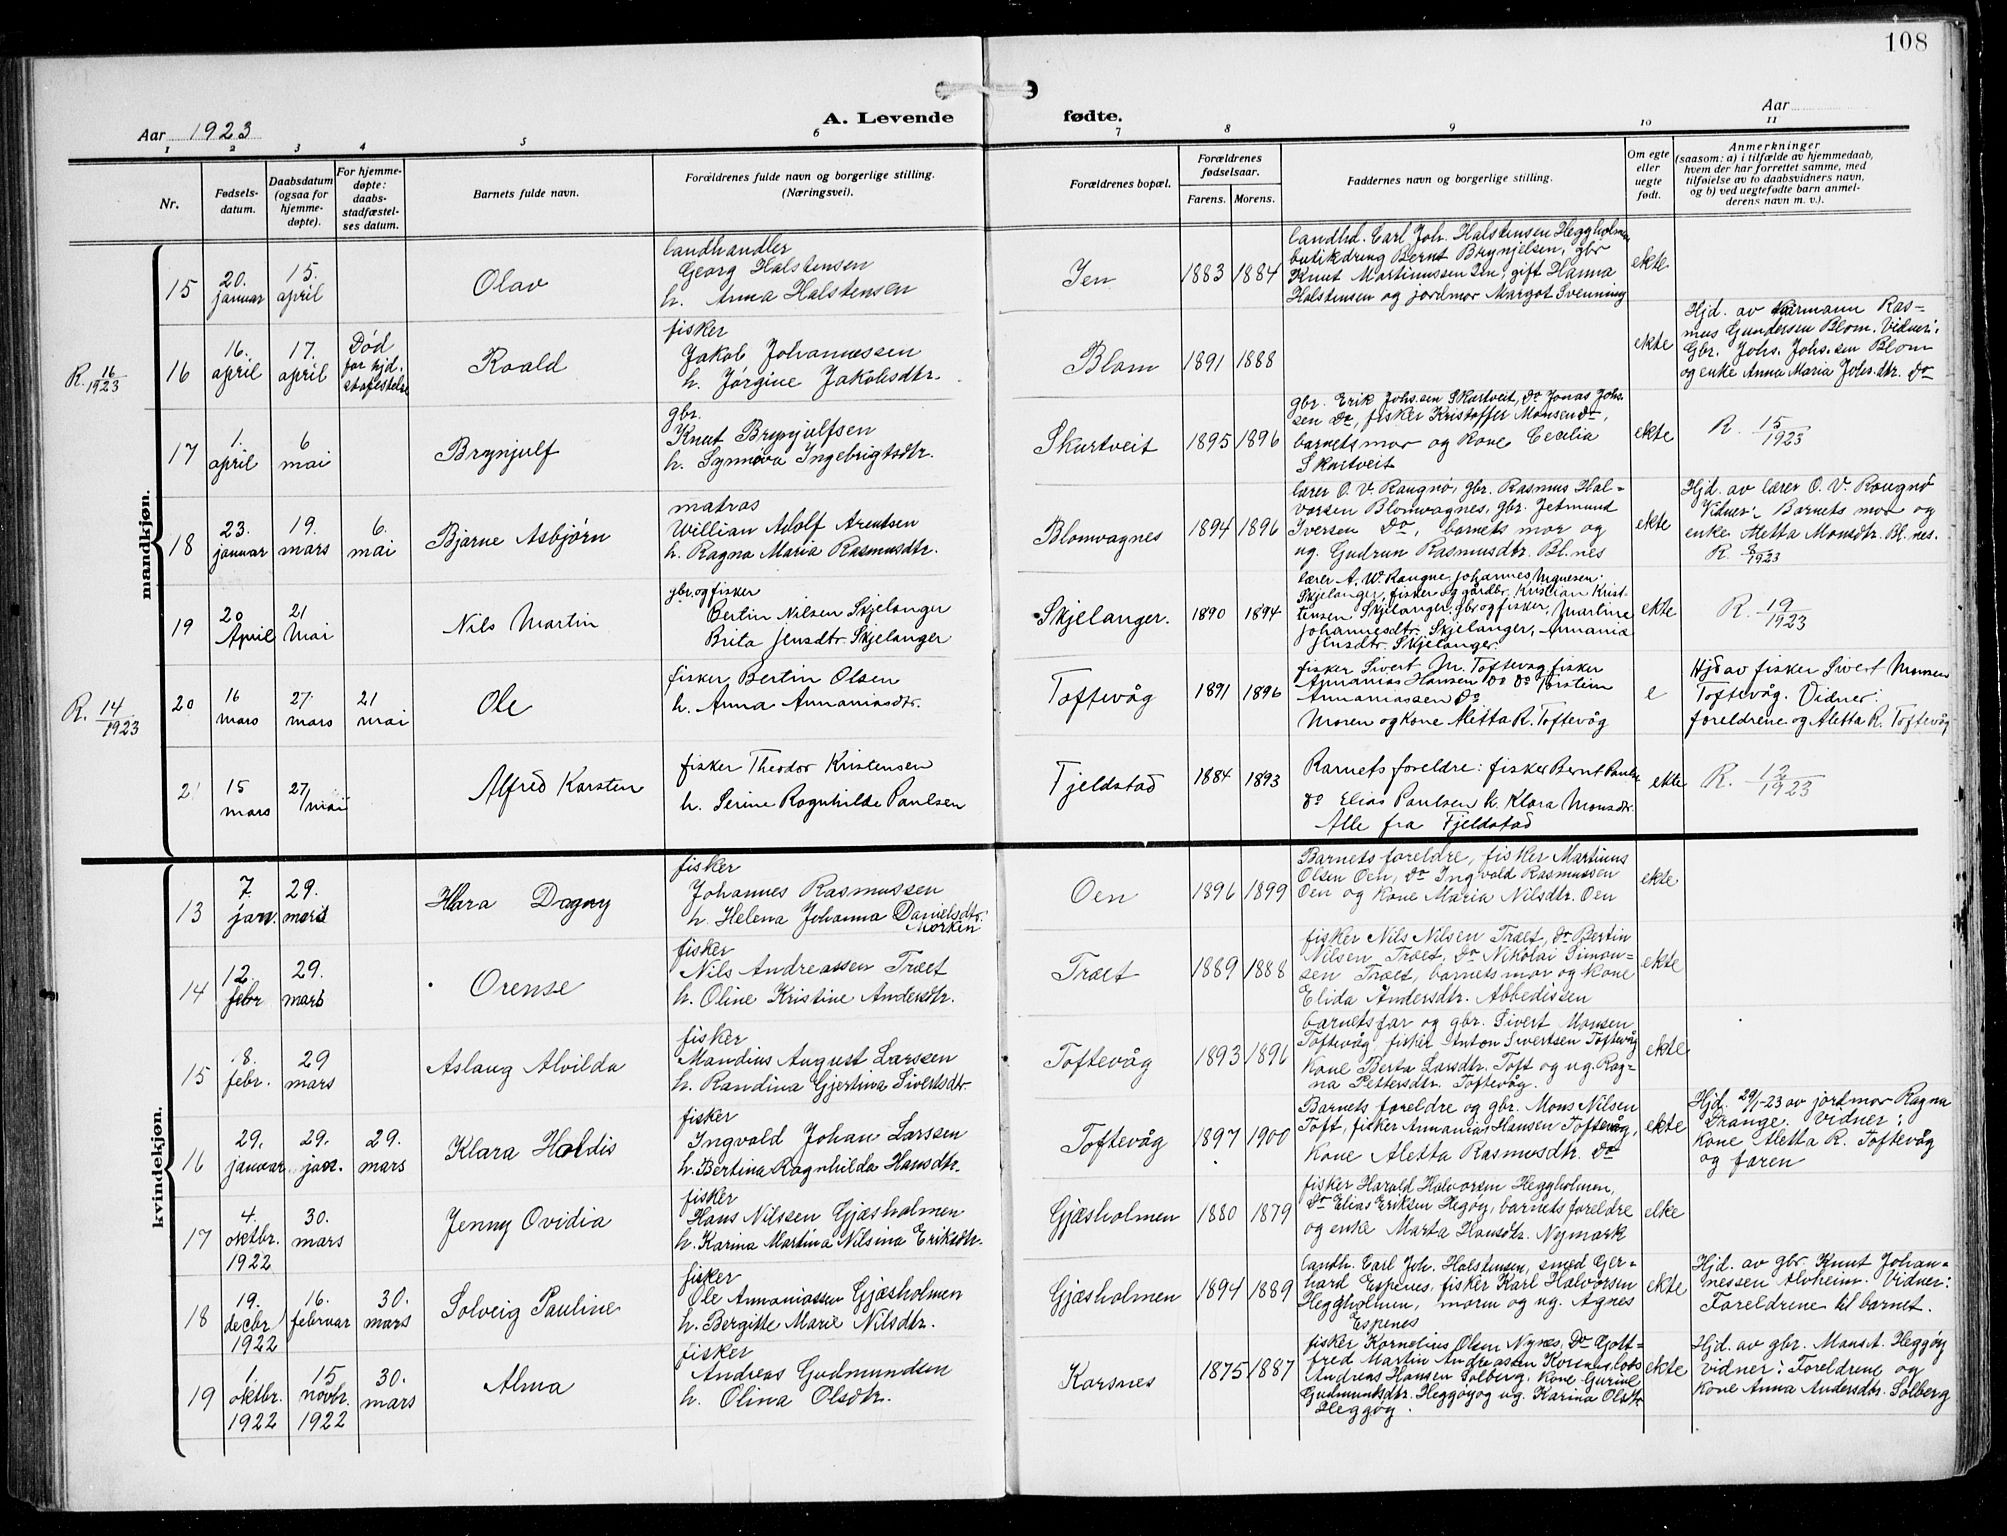 108
A. Levende fødte.
Aar 1923
Aar
1 2 3 4 5 6 7 8 9 10 11
Nr.
Fødsels-
datum.
Daabsdatum
(ogsaa for
hjemme-
døpte).
For hjemme-
døpte:
daabs-
stadfæstel-
ses datum.
Barnets fulde navn.
Forældrenes fulde navn og borgerlige stilling.
(Næringsvei).
Forældrenes bopæl.
Forældrenes
fødselsaar.
Farens. Morens.
Faddernes navn og borgerlige stilling.
Om egte
eller
uegte
født.
Anmerkninger
(saasom: a) i tilfælde av hjemmedaab,
hvem der har forrettet samme, med
tilføielse av to daabsvidners navn,
og b) ved uegtefødte barn anmel-
derens navn m. v.).
mandkjøn.
15
20.
januar
15.
april
Olav
landhandler
Georg Halstensen
h. Anna Halstensen
1883 1884
landhd. Carl Joh. Halstensen Heggholmen
butikdreng Bernt Brynjelsen, gbr
Knut Martinussen, gift Hanna
Halstensen og jordmor Margot Svenning
ekte
R. 16/1923
16
16.
april
17.
april
Død
før hjd.
stafestelse
Roald
fisker
Jakob Johannessen
h. Jørgine Jakobsdtr.
Blom
1891 1888
ekte
Hjd. av Ras-
mus Gundersen Blom. Vidner:
Gbr. Johs. Johs.sen Blom
og enke Anna Maria Johs.dtr. do
17
1.
april
6
mai
Brynjulf
gbr.
Knut Brynjulfsen
h. Synnøva Ingebrigtsdtr.
Skurtveit
1895 1896
gbr. Erik Johs.sen Skurtveit, do Jonas Johs.
sen do, fisker Kristoffer Monsen do,
barnets mor og kone Cecilia
Skurtveit
ekte
R. 15/1923
18
23.
januar
19.
mars
6.
mai
Bjarne Asbjørn
matros
Willian Adolf Arentsen
h. Ragna Maria Rasmusdtr.
Blomvagnes
1894 1896
lærer O. V. Raugnø, gbr. Rasmus Hal-
vorsen Blomvagnes, gbr. Jetmund
Iversen do, barnets mor og
ug. Gudrun Rasmusdtr. Bl.nes
ekte
Hjd. av lærer O. V. Raugnø
Vidner: Barnets mor og
enke Metta Monsdtr. Bl.nes.
R. 8/1923
19
20
April
21
Mai
Nils Martin
gbr. og fisker
Bertin Nilsen Skjelanger
Brita Jensdtr. Skjelanger
Skjelanger.
1890 1894
lærer A. W. Raugne, Johannes
Skjelanger, fisker og gårdbr. Kristian Krist-
tensen Skjelanger, gbr og fisker, Martine
Johannesdtr. Skjelanger, Annania
Jensdtr. Skjelanger.
ekte
R. 19/1923
R. 14/1923
20
16
mars
27.
mars
21
mai
Ole
fisker Bertin Olsen
h. Anna Annaniasdtr.
Toftevåg
1891 1896
fisker Sivert M. Toftevag, fisker
Annanias Hansen do do Torstein
Annaniassen do
Moren og kone Aletta R. Toftevåg
e
Hjd av fisker Sivert Monsen
Toftevåg. Vidner:
foreldrene og Aletta R. Toftevåg
2
15
mars
27/mai
Alfred Karsten
fisker Theodor Kristensen
h. Serine Ragnhilde Paulsen
Fjeldstad
1884 1893
Barnets foreldre: fisker Bernt Paulse
do Elias Paulsen h. Klara Monsdtr.
Alle fra Fjeldstad
ekte
R. 12/1923
kvindekjøn.
13
7.
jan.
29.
mars
Klara Dagny
fisker
Johannes Rasmussen
h. Helena Johanna Danielsdtr.
Morken
Oen
1896 1899
Barnets foreldre, fisker Martinus
Olsen Oen, do Ingvald Rasmussen
Oen og kone Maria Nilsdtr. Oen
ekte
14
12.
febr
29.
mars
Orense
fisker
Nils Andreassen Træet
h. Oline Kristine Andersdtr.
Træet
1889 1888
fisker Nils Nilsen Træet, do Bertin
Nilsen Træet, do Nikolai Simon-
sen Træet, barnets mor og kone
Elida Andersdtr. Abbedissen
ekte
15
8.
febr.
29
mars
Aslaug Alvilda
fisker
Mandius August Larssen
h. Randina Gjertina Sivertsdtr
Toftevåg
1893 1896
barnets far og gbr. Sivert Monsen
Toftevåg, fisker Anton Sivertsen Toftevåg
kone Berta Larsdtr. Toft og ug. Rag-
na Pettersdtr. Toftevåg.
ekte
16
29.
januar
29.
jan.
29.
mars
Klara Haldis
fisker
Ingvald Johan Larssen
h. Bertina Ragnhilda Hansdtr.
Toftevåg
1897 1900
Barnets foreldre og gbr. Mons Nilsen
Toft, fisker Annanias Hansen Toftevåg,
kone Aletta Rasmusdtr. do
ekte
Hjd. 29/1-23 av jordmor Ragna
Drange. Vidner:
kone Aletta R. Toftevåg
og faren
17
4.
oktbr.
1922
30.
mars
Jenny Ovidia
fisker
Hans Nilssen Gjæsholmen
h. Karina Martina Nilsina Eriksdtr.
Gjæsholmen
1880 1879
fisker Harald Halvorsen Heggholmen,
do Elias Eriksen Hegøy, barnets foreldre
og enke Marta Hansdtr. Nymark
ekte
18
19.
decbr
1922
16.
februar
30.
mars
Solveig Pauline
fisker
Ole Annaniassen Gjæsholmen
h. Bergitte Marie Nilsdtr.
Gjæsholmen
1894 1889
landh. Carl Joh. Halstensen, smed Ger-
hard Espenes, fisker Karl Halvorsen
Heggholmen, moren og ug. Agnes
Espenes
ekte
Hjd. av gbr. Knut Johan-
nessen Alvheim. Vidner:
Foreldrene til barnet.
19
1.
oktbr.
1922
15
novbr.
1922
30.
mars
Alma
fisker
Andreas Gudmundsen
h. Olina Olsdtr.
Karsnes
1875 1887
fisker Kornelius Olsen Nynes, do Gott-
fred Martin Andreassen
Andreas Hansen Solberg, kone Gurine
Gudmundsdtr. Heggøy og ug. Karina Olsdtr
Heggøy.
ekte
Hjd. av gbr. Mons A. Heggøy
vidner: Foreldrene og
kone Anna Andersdtr. Solberg